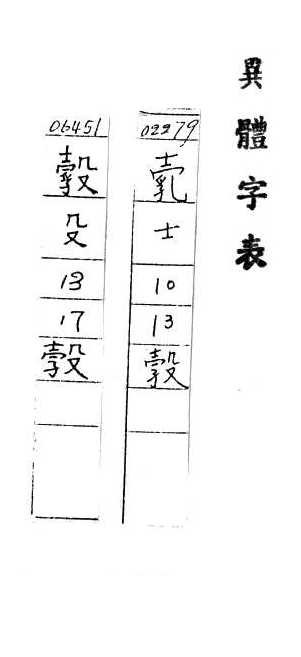 異體字表
02279
士
10
13
㝅
06451
殳
13
17
㝅